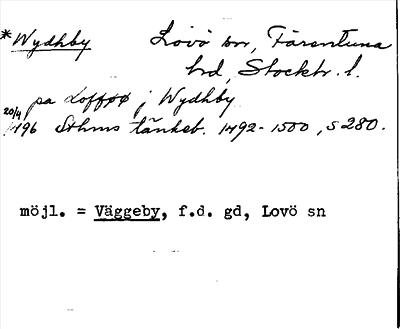 *Wydhby Lovö sn, Färentuna
hrd, Stockh. l.
pa Lofføø j Wydhby
20/4 1496 Sthms tänkeb. 1492-1500, s 280.
möjl. = Väggeby, f.d. gd, Lovö sn